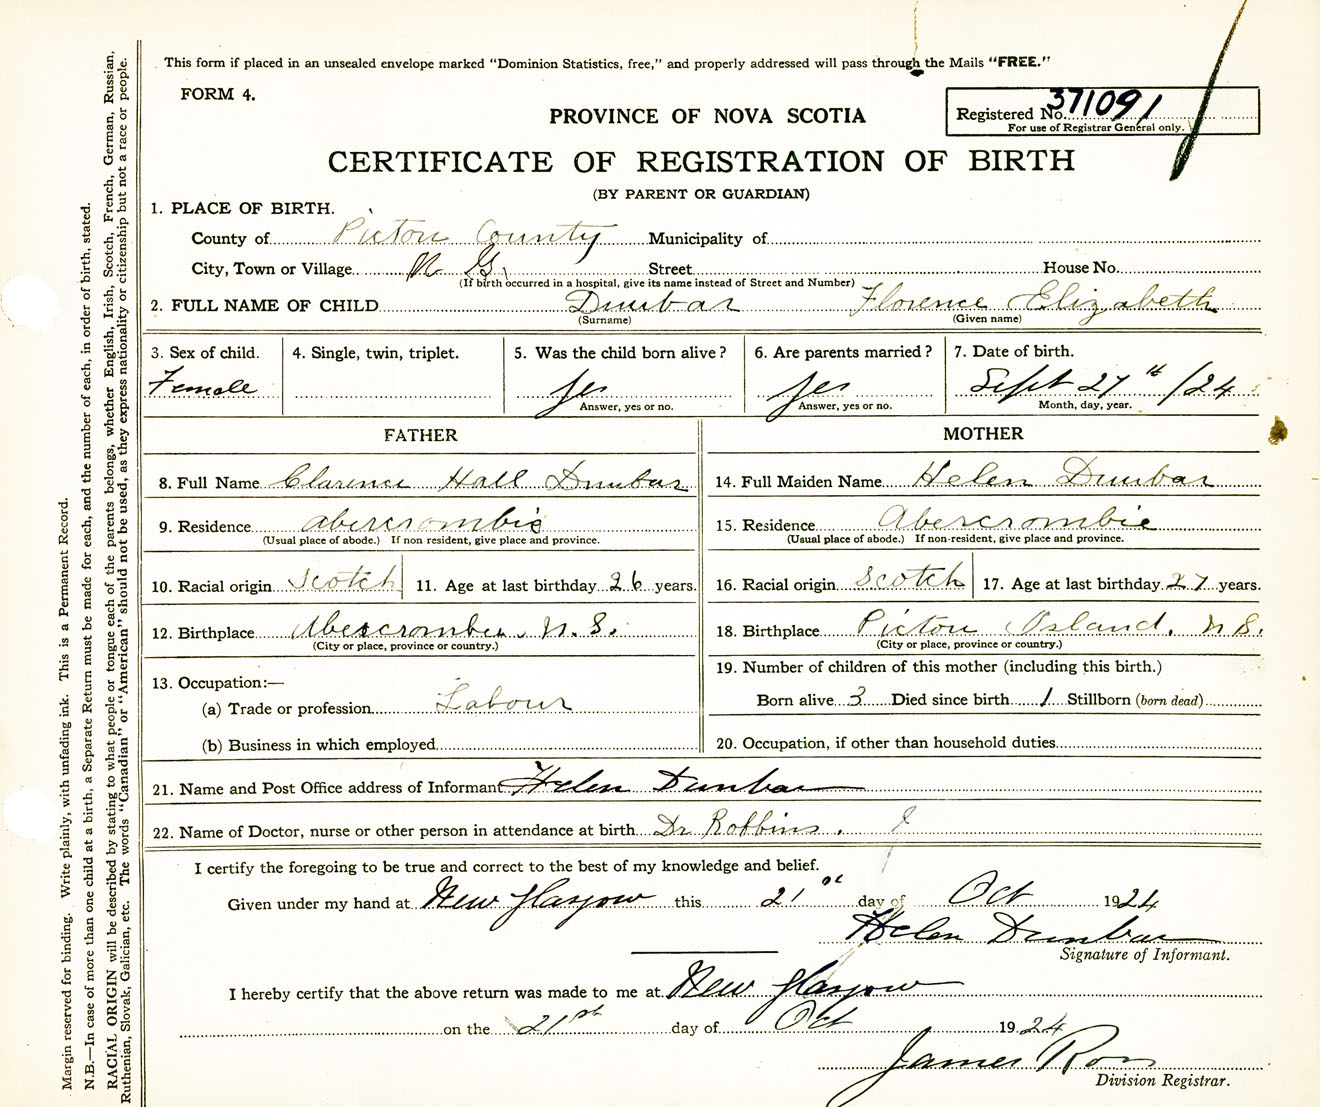 This form if placed in an unsealed envelope marked "Dominion Statistics, free," and properly addressed will pass through the Mails "FREE."
FORM 4.
PROVINCE OF NOVA SCOTIA
Registered No. 371091
For use of Registrar General only.
CERTIFICATE OF REGISTRATION OF BIRTH
(BY PARENT OR GUARDIAN)
1. PLACE OF BIRTH.
County of Pictou County Municipality of
City, Town or Village N. G. Street House No.
(If birth occurred in a hospital, give its name instead of Street and Number)
2. FULL NAME OF CHILD Dunbar Florence Elizabeth
(Surname) (Given name)
3. Sex of child. 4. Single, twin, triplet. 5. Was the child born alive? 6. Are parents married? 7. Date of birth.
Female yes yes Sept 27th /24
Answer, yes or no. Answer, yes or no. Month, day, year.
FATHER MOTHER
8. Full Name Clarence Hall Dunbar 14. Full Maiden Name Helen Dunbar
9. Residence Abercrombie 15. Residence Abercrombie
(Usual place of abode.) If non resident, give place and province. (Usual place of abode.) If non-resident, give place and province.
10. Racial origin Scotch 11. Age at last birthday 26 years. 16. Racial origin Scotch 17. Age at last birthday 27 years.
12. Birthplace Abercrombie N. S. 18. Birthplace Pictou Island. N S.
(City or place, province or country.) (City or place, province or country.)
13. Occupation:— 19. Number of children of this mother (including this birth.)
(a) Trade or profession Labour Born alive 3 Died since birth 1 Stillborn (born dead)
(b) Business in which employed 20. Occupation, if other than household duties
21. Name and Post Office address of Informant Helen Dunbar
22. Name of Doctor, nurse or other person in attendance at birth Dr Robbins.
I certify the foregoing to be true and correct to the best of my knowledge and belief.
Given under my hand at New Glasgow this 21st day of Oct 1924
Helen Dunbar
Signature of Informant.
I hereby certify that the above return was made to me at New Glasgow
on the 21st day of Oct 1924
James Ross
Division Registrar.
Margin reserved for binding. Write plainly, with unfading ink. This is a Permanent Record.
N.B.—In case of more than one child at a birth, a Separate Return must be made for each, and the number of each, in order of birth, stated.
RACIAL ORIGIN will be described by stating to what people or tongue each of the parents belongs, whether English, Irish, Scotch, French, German, Russian,
Ruthenian, Slovak, Galician, etc. The words "Canadian" or "American" should not be used, as they express nationality or citizenship but not a race or people.